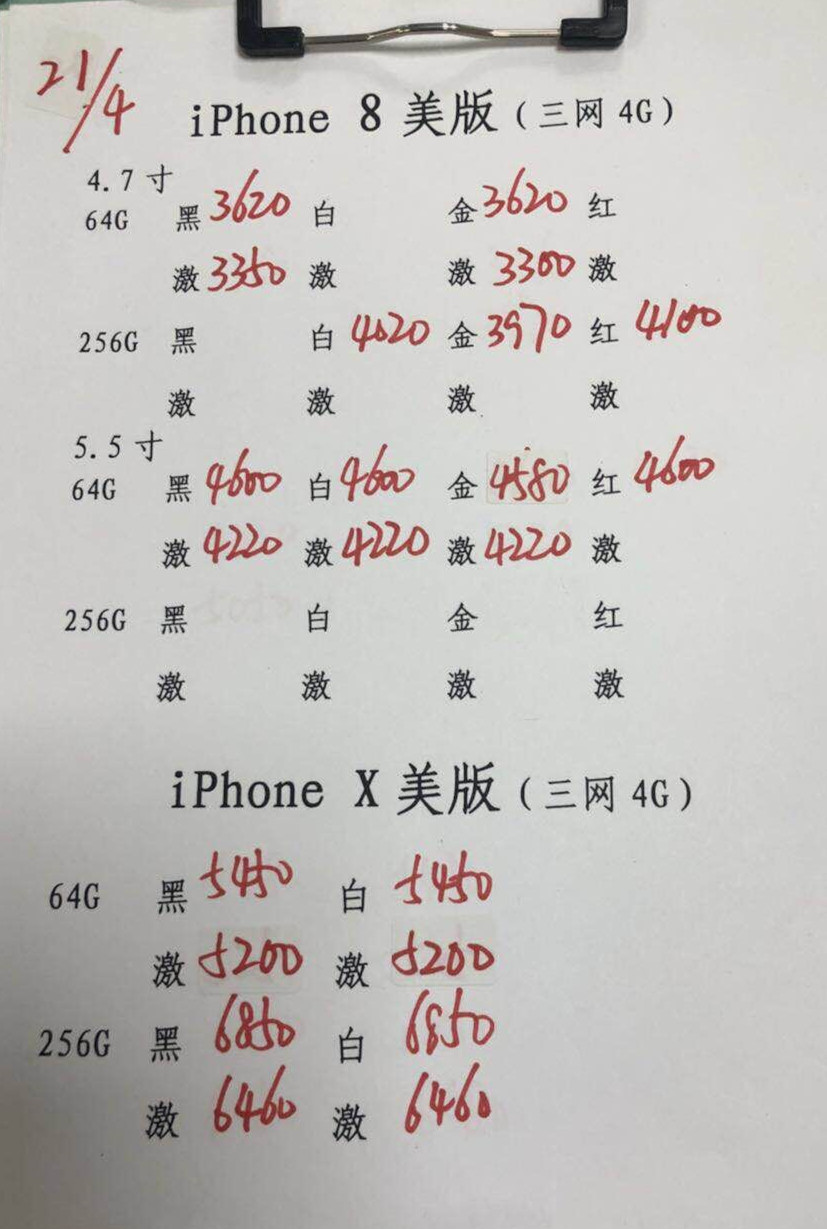 21/4
iPhone 8 美版(三网 4G)
4.7 寸
64G 黑 3620 白 金 3620 红
激 3350 激 激 3300 激
256G 黑 白 4020 金 3970 红 4100
激 激 激 激
5.5 寸
64G 黑 4600 白 4600 金 4580 红 4600
激 4220 激 4220 激 4220 激
256G 黑 白 金 红
激 激 激 激
iPhone X 美版(三网 4G)
64G 黑 5450 白 5450
激 5200 激 5200
256G 黑 6850 白 6850
激 6460 激 6460